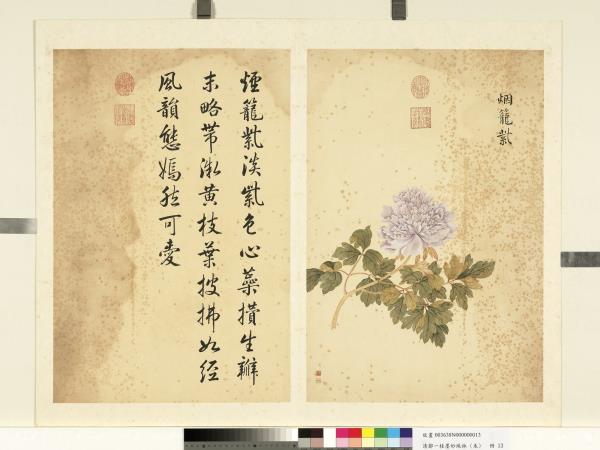 烟籠紫
煙籠紫淡紫色心蘂攢生瓣
末略帶微黃枝葉披拂如經
風韻態嫣然可愛
故畫 003638N000000013
清鄒一桂墨妙珠林（未） 冊 13